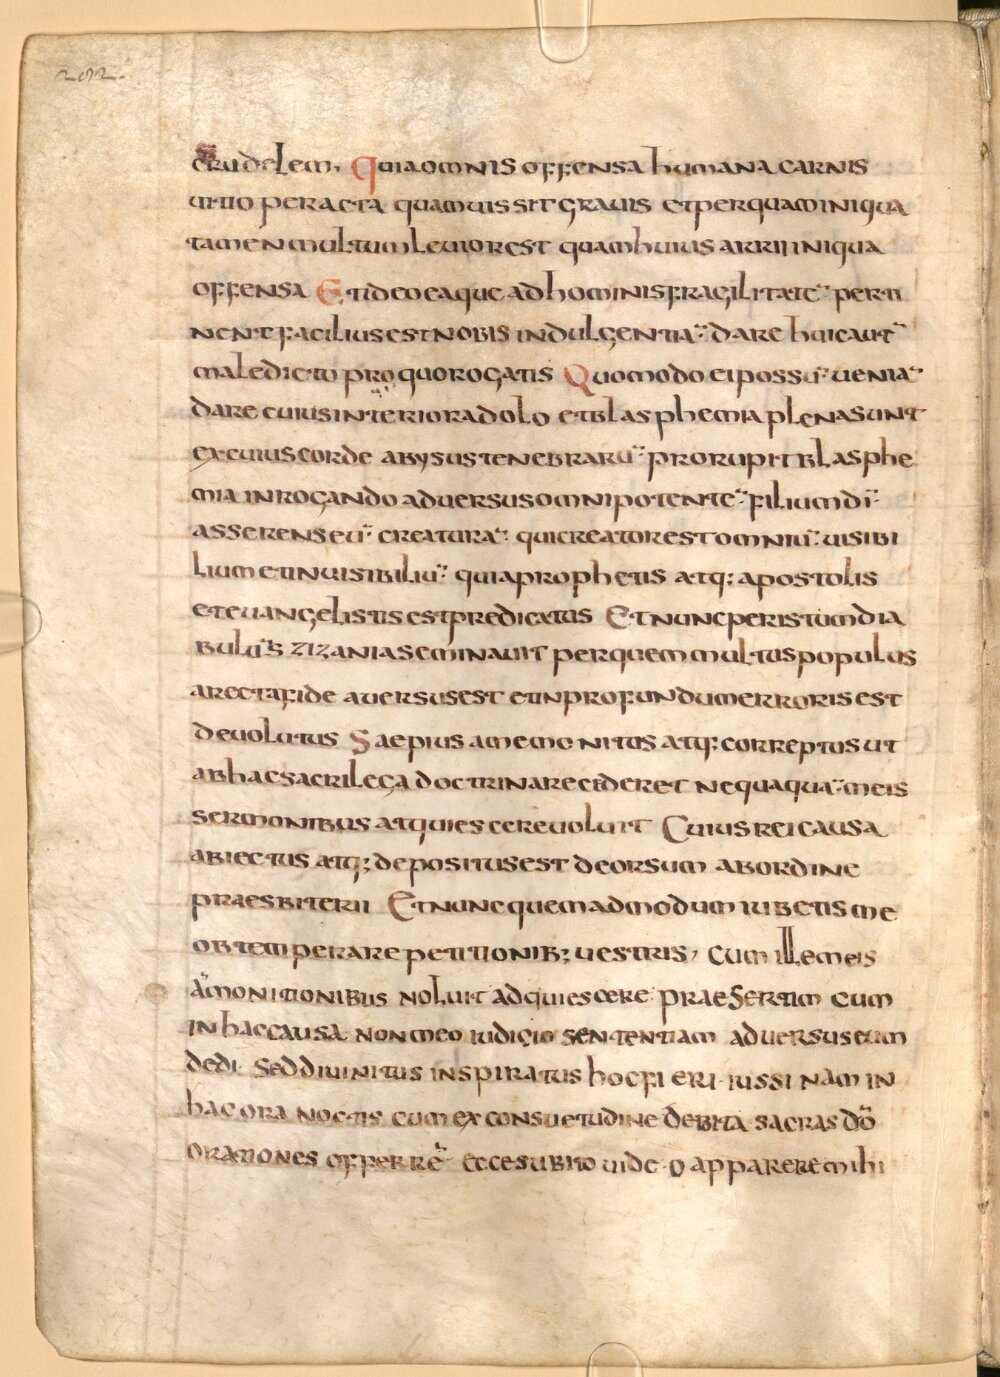 202.
crudelem, Quia omnis offensa humana carnis
uitio peracta quamuis sit grauis et perquam iniqua
tamen multum leuior est quam huius arrii iniqua
offensa Et ideo ea que ad hominis fragilitatē perti
nent facilius est nobis indulgentiā dare huic aut̄
maledicto pro quo rogatis Quomodo ei possū ueniā
dare cuius interiora dolo et blasphemia plena sunt
ex cuius corde abysus tenebrarū prorupit blasphe
mia inrogando aduersus omnipotentē filium dī
asserens eū creaturā qui creator est omniū uisibi
lium et inuisibiliū quia prophetis atq; apostolis
et euangelistis est predicatus Et nunc per istum dia
bulus zizania seminauit per quem multus populus
a recta fide auersus est et in profundum erroris est
deuolutus Saepius a me monitus atq; correptus ut
ab hac sacrilega doctrina recederet nequaquā meis
sermonibus atquiescere uoluit Cuius rei causa
abiectus atq; depositus est deorsum ab ordine
praesbiterii Et nunc quemadmodum iubetis me
obtemperare petitionib; uestris, cum ille meis
āmonitionibus noluit adquiescere praesertim cum
in hac causa non meo iudicio sententiam aduersus eum
dedi. Sed diuinitus inspiratus hoc fieri iussi nam in
hac ora noctis cum ex consuetudine debita sacras dō
orationes offerrē ecce subito uideo apparere mihi